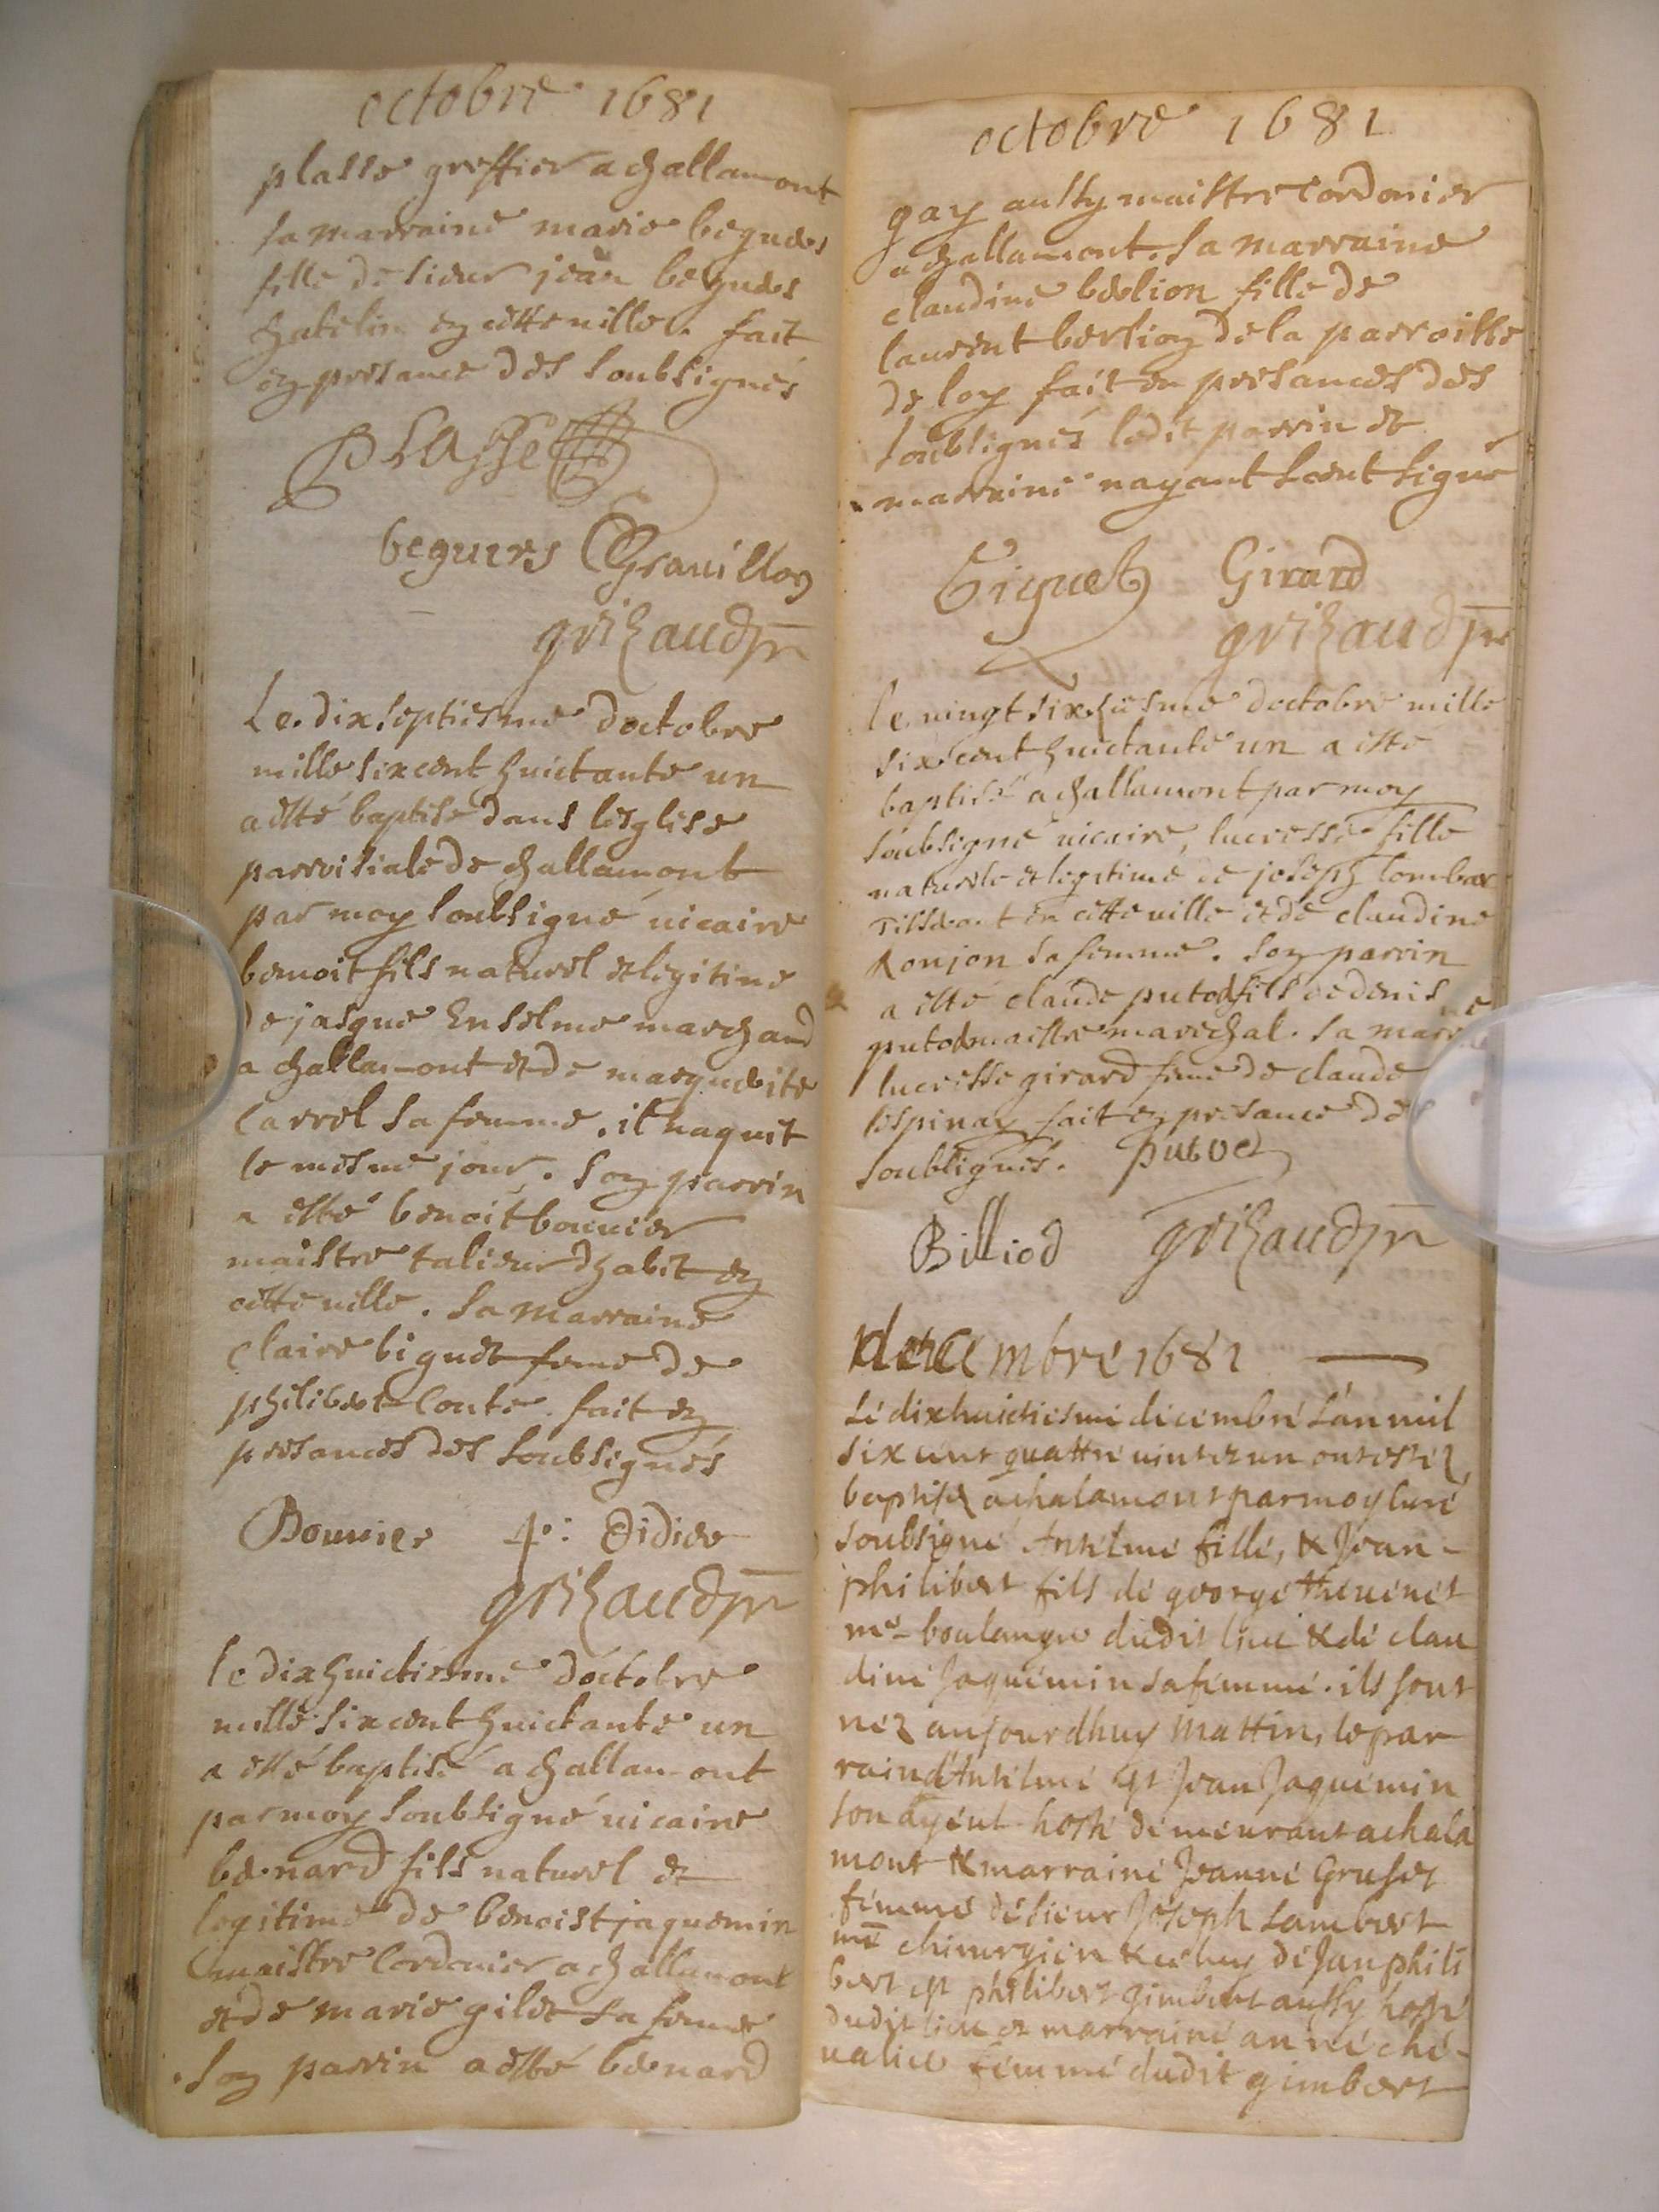 octobre 1681
plasse greffier a challamont
sa marraine marie begueres
fille de sieur jean begueres
en cette ville. fait
en presance des soubsignés
PLASSe
begueres Gravillon
grihaud pr
Le dix septiesme doctobre
mille six cent huictante un
a esté baptise dans lesglise
parroisiale de challamont
par moy soubsigné vicaire
benoit fils naturel et legitime
de jasque Enselme marchand
a challamont et de marguerite
Carrel sa femme. il naquit
le mesme jour. son parrin
a esté benoit bouvier
maistre talieur dhabit en
cette ville. sa marraine
claire biguet feme de
philibert Conte. fait en
presances des soubsignés
Bouvier p: didier
grihaud pr
le dix huictiesme doctobre
mille six cent huictante un
a esté baptisé a challamont
par moy soubsigné vicaire
bernard fils naturel et
legitime de benoist jaquemin
maistre Cordonier a challamont
et de marie gilet sa femme
son parrin a esté bernard
octobre 1681
gay aussy maistre cordonier
a challamont. sa marraine
claudine berlion fille de
laurent berlion de la parroisse
de loy fait en presances des
soubsignés ledit parrin et
marraine nayant scent signé
Biguet Girard
grihaud pre
le vingt sixhiesme doctobre mille
six cent huictante un a esté
baptisé a challamont par moy
soubsigné vicaire, lucresse fille
naturele et legitime de joseph lombar
Tisserant en cette ville et de claudine
Ronjon sa femme. son parrin
a esté claude putod fils de denis
putod maistre marechal. sa marraine
lucresse girard feme de claude
lespinay fait en presance des
soubsignés. putod
Billiod grihaud pr
decembre 1681
Le dixhuictiesme decembre L'an mil
six cent quattre vint et un ont estez
baptisez a chalamont par moy curé
soubsigné Anselme fille, & Jean-
philibert fils de george thevenet
me boulanger dudit lieu & de clau
dine Jaquemin sa femme. ils sont
nez aujourdhuy mattin, le par
rain d'Anselme est Jean Jaquemin
son ayeul hoste demeurant a chala
mont & marraine Jeanne Gruset
femme de sieur Joseph Lambert
me chirurgien & celuy de Jan phili
bert est philibert gimbert aussy hoste
dudit lieu et marraine anne che-
valier femme dudit gimbert